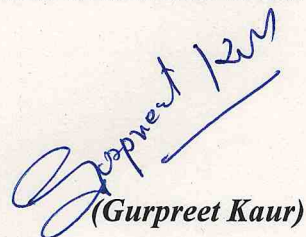 Gurpreet Kaur
(Gurpreet Kaur)